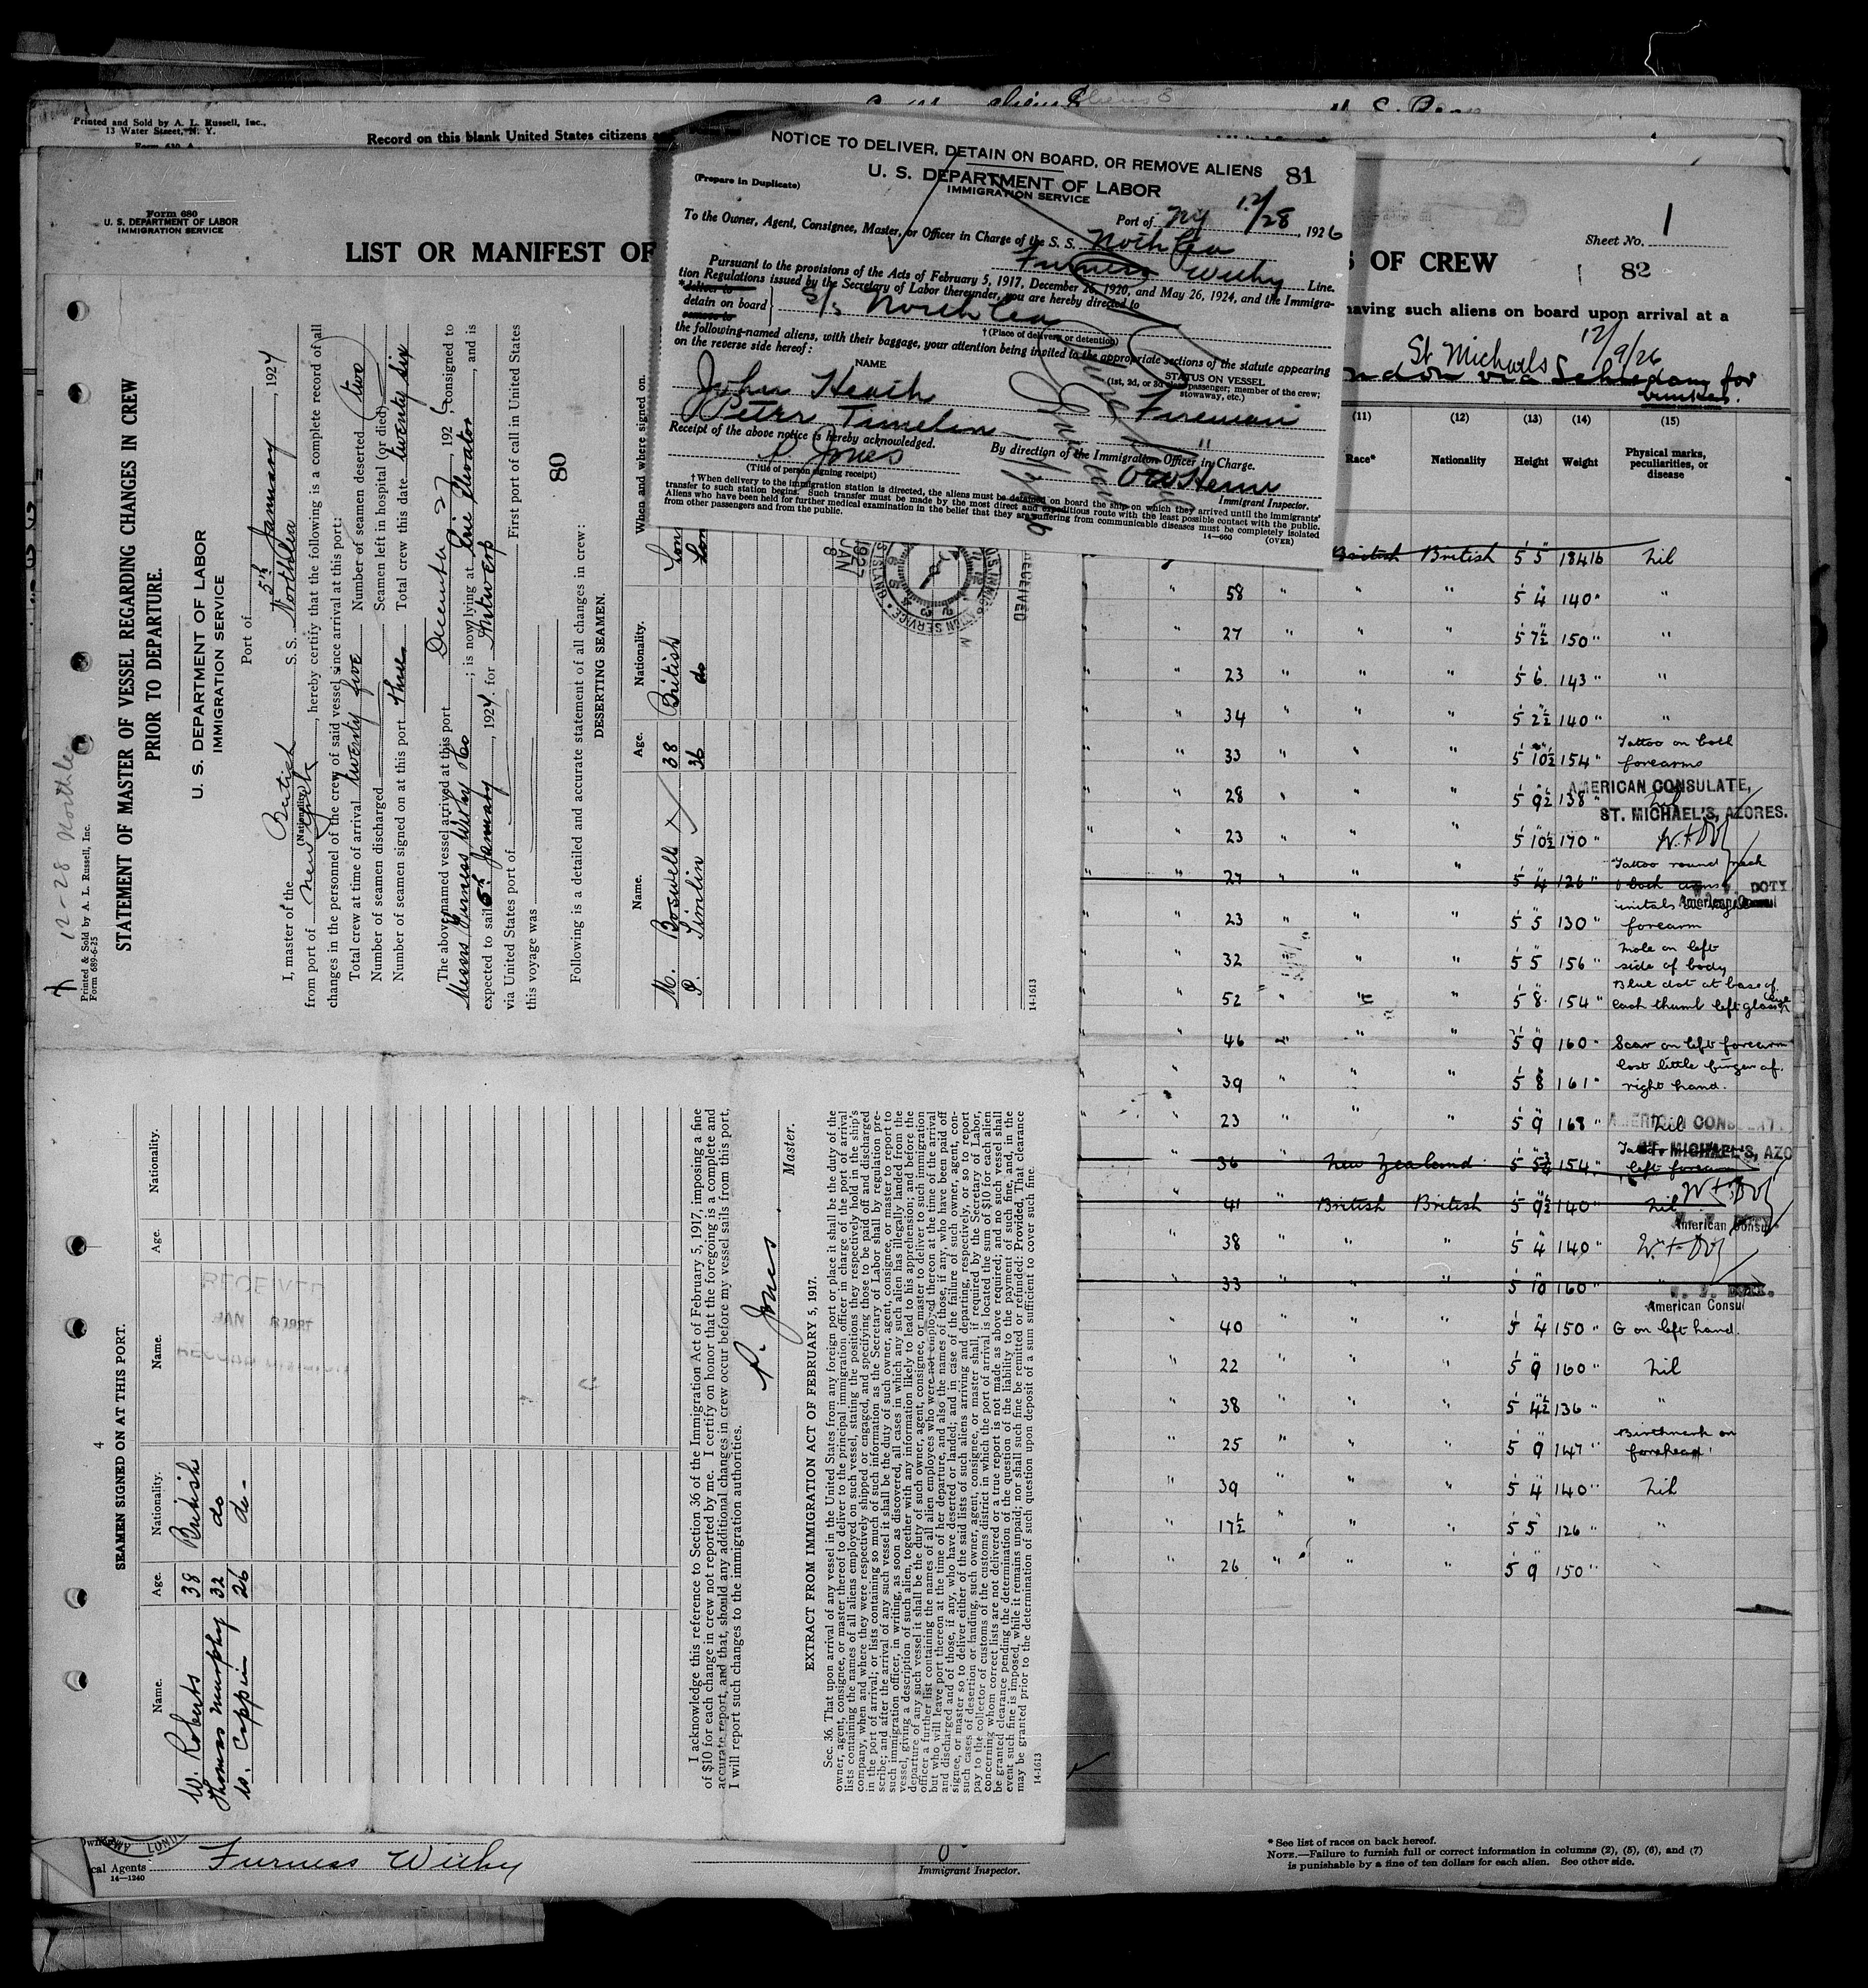 Printed and Sold by A. L. Russell, Inc.,
13 Water Street, N. Y.
Form 630 A
Record on this blank United States citizens
Form 680
U. S. DEPARTMENT OF LABOR
IMMIGRATION SERVICE
LIST OR MANIFEST OF
OF CREW
Sheet No. 1
82
having such aliens on board upon arrival at a
St Michaels 12/9/26
for
bunkers.
NOTICE TO DELIVER, DETAIN ON BOARD, OR REMOVE ALIENS 81
(Prepare in Duplicate)
U. S. DEPARTMENT OF LABOR
IMMIGRATION SERVICE
Port of NY 12/28, 1926
To the Owner, Agent, Consignee, Master, or Officer in Charge of the S. S. Northlea
Furness Withy Line.
Pursuant to the provisions of the Acts of February 5, 1917, December 26, 1920, and May 26, 1924, and the Immigra-
tion Regulations issued by the Secretary of Labor thereunder, you are hereby directed to
*deliver to
detain on board } S/S Northlea
remove to
† (Place of delivery or detention)
the following-named aliens, with their baggage, your attention being invited to the appropriate sections of the statute appearing
on the reverse side hereof:
NAME
STATUS ON VESSEL
(1st, 2d, or 3d class passenger; member of the crew;
stowaway, etc.)
John Heath Fireman
Peter Timelin "
Receipt of the above notice is hereby acknowledged.
By direction of the Immigration Officer in Charge.
P Jones
(Title of person signing receipt)
Immigrant Inspector.
† When delivery to the immigration station is directed, the aliens must be detained on board the ship on which they arrived until the immigrants'
transfer to such station begins. Such transfer must be made by the most direct and expeditious route with the least possible contact with the public.
Aliens who have been held for further medical examination in the belief that they are suffering from communicable diseases must be completely isolated
from other passengers and from the public.
14—660
(OVER)
7 12-28 Northlea
Printed & Sold by A. L. Russell, Inc.
Form 689-6-25
STATEMENT OF MASTER OF VESSEL REGARDING CHANGES IN CREW
PRIOR TO DEPARTURE.
U. S. DEPARTMENT OF LABOR
IMMIGRATION SERVICE
Port of
5th January, 1927
I, master of the British S. S. Northlea
(Nationality)
from port of New York, hereby certify that the following is a complete record of all
changes in the personnel of the crew of said vessel since arrival at this port:
Total crew at time of arrival twenty five Number of seamen deserted two
Number of seamen discharged Seamen left in hospital (or died)
Number of seamen signed on at this port three Total crew this date twenty six
The above named vessel arrived at this port December 27, 1926, consigned to
Messrs Furness Withy &Co; is now lying at Erie Elevator, and is
expected to sail 5th January, 1927. for Antwerp
via United States port of First port of call in United States
this voyage was
80
Following is a detailed and accurate statement of all changes in crew:
DESERTING SEAMEN.
Name. Age. Nationality. When and where signed on.
M. Boswell X 38 British Lon
P. Timlin 36 do Lon
14-1613
RECEIVED
1927 JAN 8
4
SEAMEN SIGNED ON AT THIS PORT.
Name. Age. Nationality. Name. Age. Nationality.
W. Roberts 38 British
Thomas Murphy 32 do
W. Cappien 26 do-
RECEIVED
JAN 8 1927
I acknowledge this reference to Section 36 of the Immigration Act of February 5, 1917, imposing a fine
of $10 for each change in crew not reported by me. I certify on honor that the foregoing is a complete and
accurate report, and that, should any additional changes in crew occur before my vessel sails from this port,
I will report such changes to the immigration authorities.
P. Jones
Master.
EXTRACT FROM IMMIGRATION ACT OF FEBRUARY 5, 1917.
Sec. 36. That upon arrival of any vessel in the United States from any foreign port or place it shall be the duty of the
owner, agent, consignee, or master thereof to deliver to the principal immigration officer in charge of the port of arrival
lists containing the names of all aliens employed on such vessel, stating the positions they respectively hold in the ship's
company, when and where they were respectively shipped or engaged, and specifying those to be paid off and discharged
in the port of arrival; or lists containing so much of such information as the Secretary of Labor shall by regulation pre-
scribe; and after the arrival of any such vessel it shall be the duty of such owner, agent, consignee, or master to report to
such immigration officer, in writing, as soon as discovered, all cases in which any such alien has illegally landed from the
vessel, giving a description of such alien, together with any information likely to lead to his apprehension; and before the
departure of any such vessel it shall be the duty of such owner, agent, consignee, or master to deliver to such immigration
officer a further list containing the names of all alien employees who were not employed thereon at the time of the arrival
but who will leave port thereon at the time of her departure, and also the names of those, if any, who have been paid off
and discharged and of those, if any, who have deserted or landed; and in case of the failure of such owner, agent, con-
signee, or master so to deliver either of the said lists of such aliens arriving and departing, respectively, or so to report
such cases of desertion or landing, such owner, agent, consignee, or master shall, if required by the Secretary of Labor,
pay to the collector of customs of the customs district in which the port of arrival is located the sum of $10 for each alien
concerning whom correct lists are not delivered or a true report is not made as above required; and no such vessel shall
be granted clearance pending the determination of the question of the liability to the payment of such fine, and, in the
event such fine is imposed, while it remains unpaid; nor shall such fine be remitted or refunded: Provided, That clearance
may be granted prior to the determination of such question upon deposit of a sum sufficient to cover such fine.
14-1613
(11) (12) (13) (14) (15)
Race* Nationality Height Weight Physical marks, peculiarities, or disease
British British 5 5 184 lb Nil
" 58 " " " 5 4 140 " "
" 27 " " " 5 7½ 150 " "
" 23 " " " 5 6 143 " "
" 34 " " " 5 2½ 140 " "
" 33 " " " 5 10½ 154 " Tattoo on both forearms
" 28 " " " 5 9½ 138 " Nil
AMERICAN CONSULATE,
ST. MICHAEL'S, AZORES.
" 23 " " " 5 10½ 170 "
" 27 " " " 5 4 126 " Tattoo round neck & both arms
DOTY
American Consul
" 23 " " " 5 5 130 " initials forearm
" 32 " " " 5 5 156 " Mole on left side of body
" 52 " " " 5 8 154 " Blue dot at base of each thumb left glass eye
" 46 " " " 5 9 160 " Scar on left forearm
" 39 " " " 5 8 161 " Lost little finger of right hand.
" 23 " " " 5 9 168 " Nil
AMERICAN CONSULATE
ST. MICHAEL'S, AZO
" 36 New Zealand 5 5¾ 154 " Tattoo left forearm
" 41 British British 5 9½ 140 " Nil
American Consul
" 38 " " " 5 4 140 "
" 33 " " " 5 10 160 " "
American Consul
" 40 " " " 5 4 150 " G on left hand.
" 22 " " " 5 9 160 " Nil
" 38 " " " 5 4½ 136 " "
" 25 " " " 5 9 147 " Birthmark on forehead
" 39 " " " 5 4 140 " Nil
" 17½ " " " 5 5 126 " "
" 26 " " " 5 9 150 " "
cal Agents Furness Withy
14—1240
Immigrant Inspector.
* See list of races on back hereof.
NOTE.—Failure to furnish full or correct information in columns (2), (5), (6), and (7)
is punishable by a fine of ten dollars for each alien. See other side.